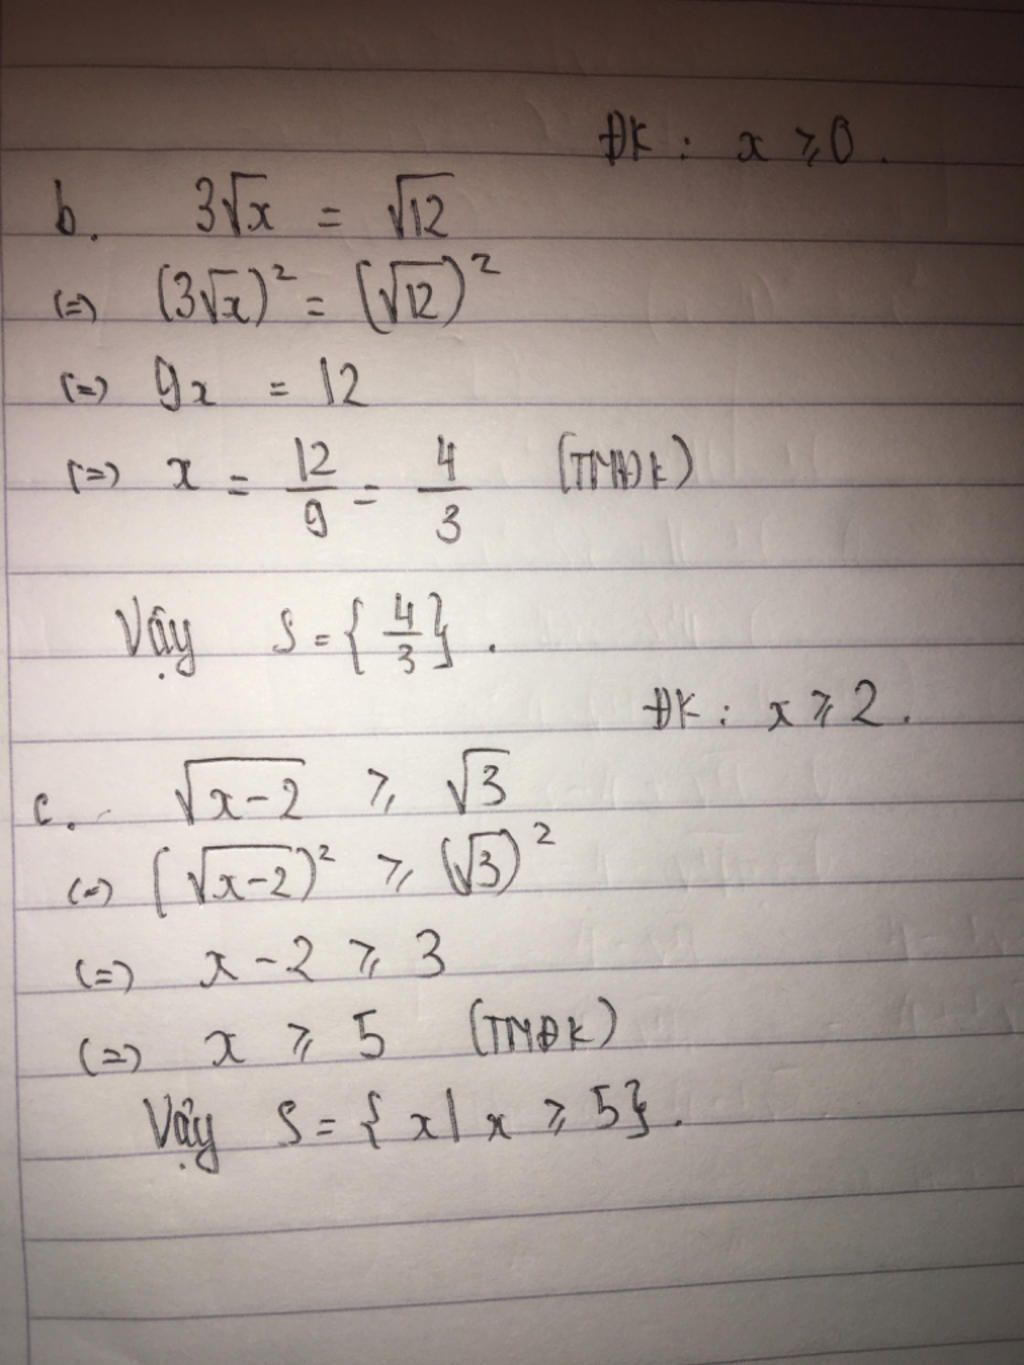 ĐK : x ⩾ 0 .
b. 3√x = √12
(=) (3√x)² = (√12)²
(=) 9x = 12
(=) x = 12/9 = 4/3 (TMĐK)
Vậy S = { 4/3 } .
ĐK : x ⩾ 2 .
c. √(x-2) ⩾ √3
(=) (√(x-2))² ⩾ (√3)²
(=) x - 2 ⩾ 3
(=) x ⩾ 5 (TMĐK)
Vậy S = { x | x ⩾ 5 } .